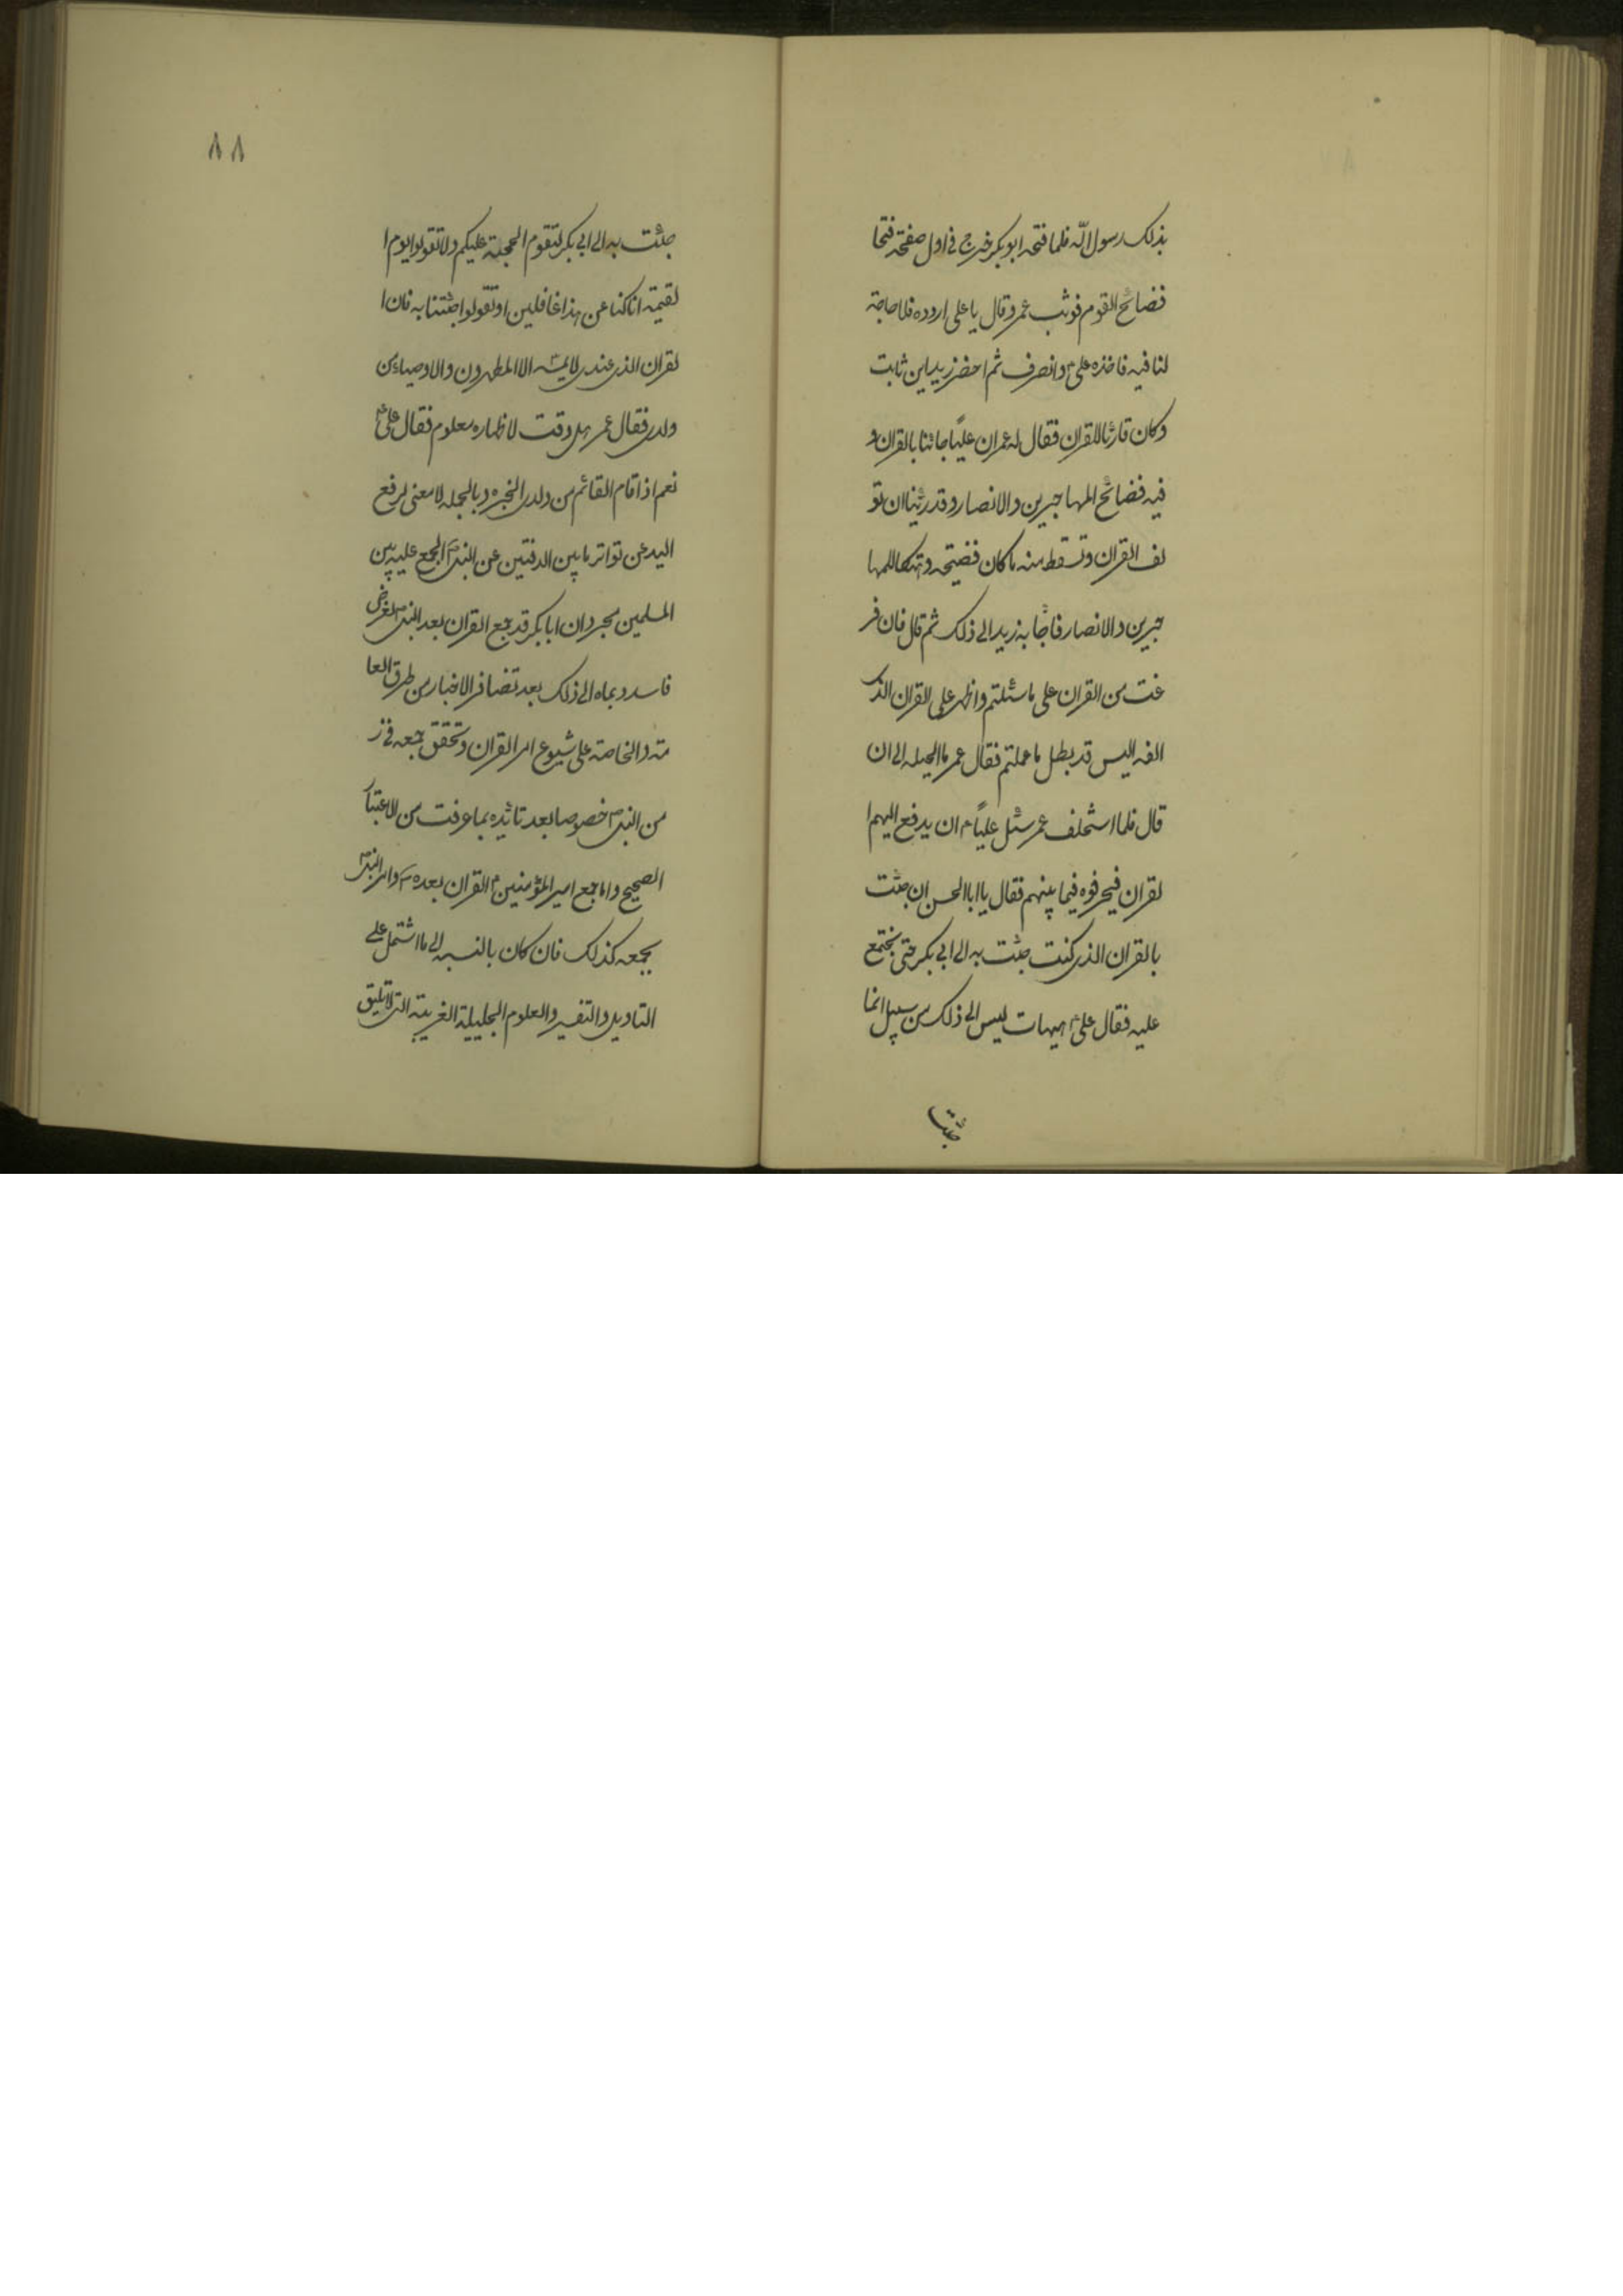 بذلک رسول الله فلما فتحه ابو بکر خرج فی اول صفحة فتحا
فضائح القوم فوثب عمر و قال یا علی اردده فلا حاجة
لنا فیه فاخذه علی ع وانصرف ثم احضر زید ابن ثابت
وکان قارئا للقران فقال له عمر ان علیاً جائنا بالقران و
فیه فضائح المهاجرین والانصار وقد رئینا ان تو
لف القران وتسقط منه ما کان فضیحه وهتکا للمها
جرین والانصار فاجابه زید الی ذلک ثم قال فان فر
غت من القران علی ما سئلتم واظهر علی القران الذی
الفه الیس قد بطل ما عملتم فقال عمر ما الحیله الی ان
قال فلما استخلف عمر سئل علیاً ع ان یدفع الیهم ا
لقران فیحرفوه فیما بینهم فقال یا ابا الحسن ان جئت
بالقران الذی کنت جئت به الی ابی بکر حتی نجتمع
علیه فقال علی ع هیهات لیس الی ذلک من سبیل انما
جئت
٨٨
جئت به الی ابی بکر لتقوم الحجة علیکم ولا تقولوا یوم ا
لقیمة انا کنا عن هذا غافلین او تقولوا ما جئتنا به فان ا
لقران الذی عندی لا یمسه الا المطهرون والاوصیاء من
ولدی فقال عمر هل وقت لاظهاره معلوم فقال علی ع
نعم اذا قام القائم من ولدی الخبر ه وبالجمله لا معنی لرفع
الید عن تواتر ما بین الدفتین عن النبی ص المجمع علیه بین
المسلمین مجرد ان ابا بکر قد جمع القران بعد النبی ص لغرض
فاسد دعاه الی ذلک بعد تضافر الاخبار من طرق العا
مة والخاصة علی شیوع امر القران وتحقق جمعه فی ز
من النبی ص خصوصا بعد تائیده بما عرفت من الاعتبار
الصحیح واما جمع امیر المؤمنین ع القران بعده ص وامر النبی ص
بجمعه کذلک فان کان بالنسبه الی ما اشتمل علی
التاویل والتفسیر والعلوم الجلیلة الغریبة التی لا تلیق